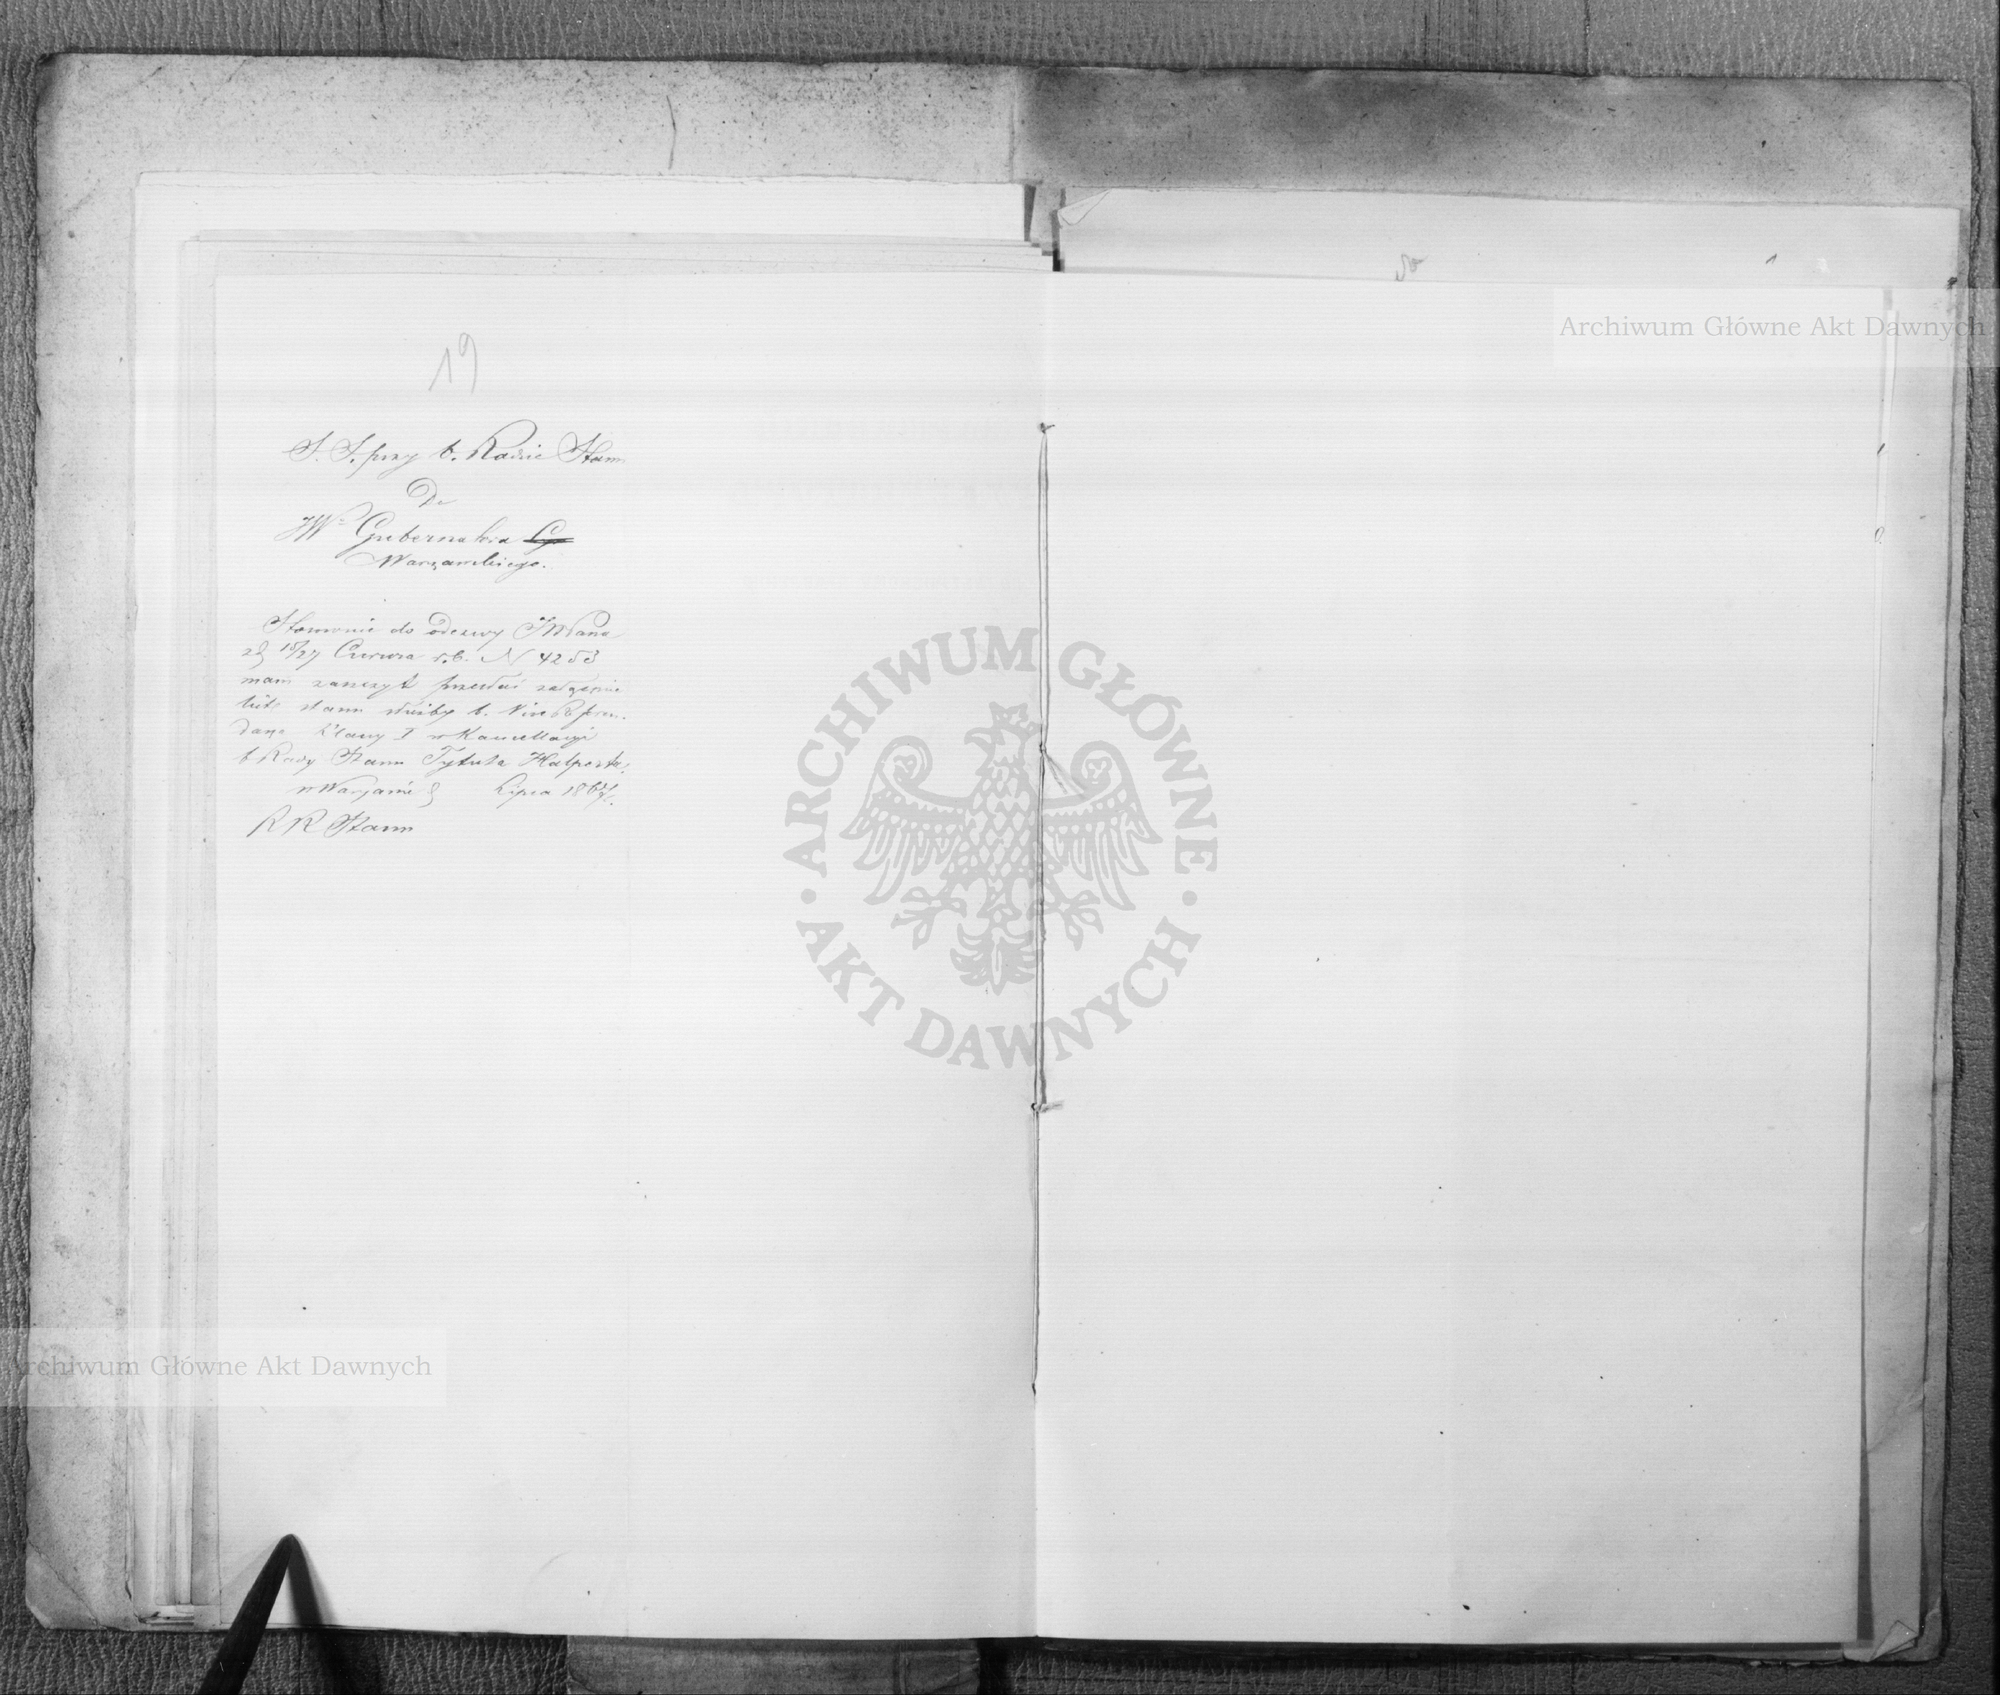 19
S. S. przy b. Radzie Stanu
Do
JW= Gubernatora
Warszawskiego.
Stosownie do odezwy JWPana
z d 15/27 Czerwca r.b. N 4253
mam zaszczyt przesłać załączenie
listę stanu służby b. ViceReferen-
darza Klassy I w Kancellaryi
b Rady Stanu Tytusa Halperta,
w Warszawie d Lipca 1867 r.
R R Stanu
Archiwum Główne Akt Dawnych
ARCHIWUM GŁÓWNE
AKT DAWNYCH
Archiwum Główne Akt Dawnych